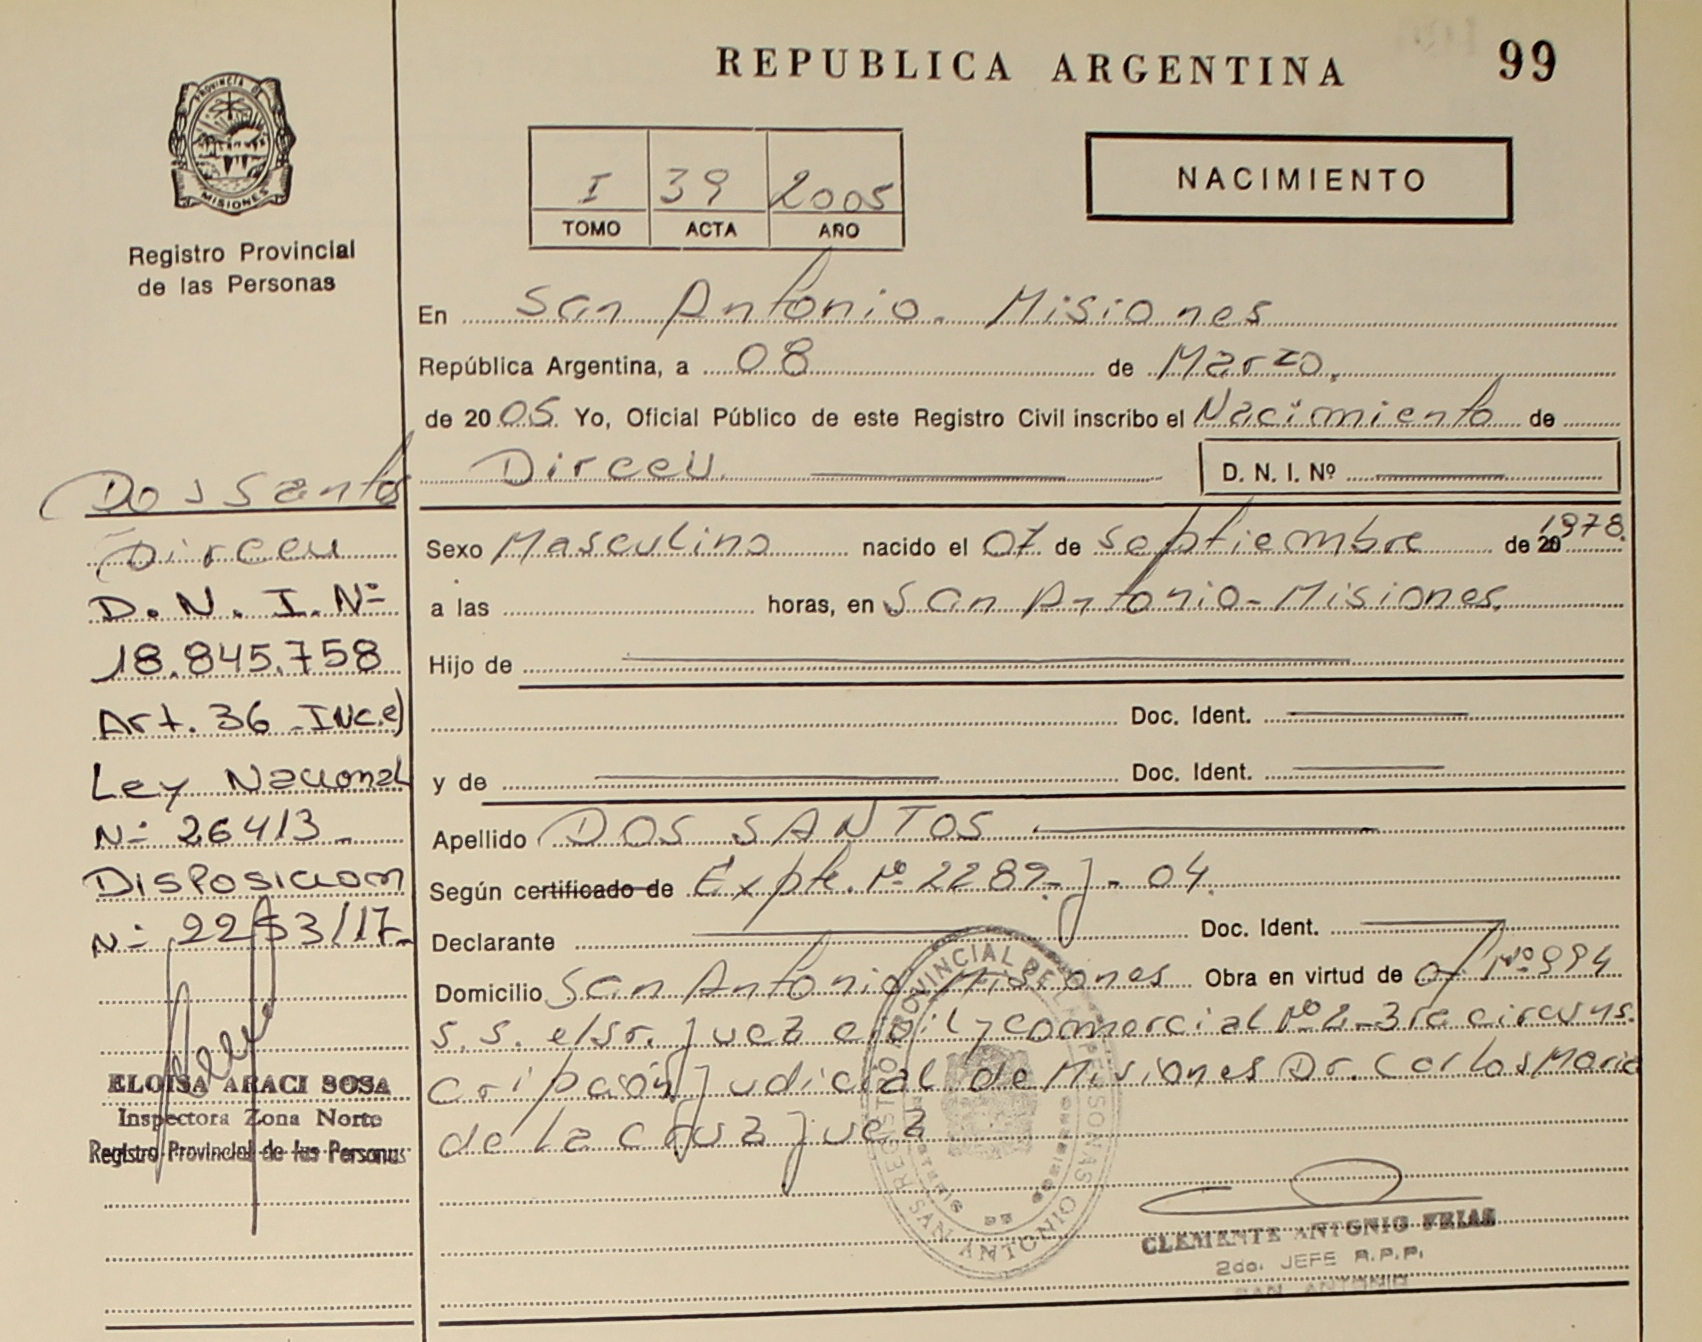 REPUBLICA ARGENTINA
99
PROVINCIA DE
MISIONES
Registro Provincial
de las Personas
I 39 2005
TOMO ACTA AÑO
NACIMIENTO
En San Antonio. Misiones
República Argentina, a 08 de Marzo.
de 2005 Yo, Oficial Público de este Registro Civil inscribo el Nacimiento de
Dirceu. D. N. I. Nº
Sexo Masculino nacido el 07 de septiembre de 20 1978.
a las horas, en San Antonio-Misiones.
Hijo de
Doc. Ident.
y de Doc. Ident.
Apellido DOS SANTOS
Según certificado de Expte. Nº 2289-J-04.
Declarante Doc. Ident.
Domicilio San Antonio Misiones Obra en virtud de of Nº 994
s.s. el sr. Juez civil y comercial Nº 2-3ra circuns.
cripción Judicial de Misiones Dr. Carlos Maria
de la cruz Juez
Dos Santos
Dirceu
D.N.I. Nº
18.845.758
Art. 36 Inc.e)
Ley Nacional
Nº 26413
Disposicion
Nº 2253/17
ELOISA ARACI SOSA
Inspectora Zona Norte
Registro Provincial de las Personas
REGISTRO PROVINCIAL DE LAS PERSONAS
SAN ANTONIO
CLEMENTE ANTONIO FRIAS
2do. JEFE R.P.P.
SAN ANTONIO